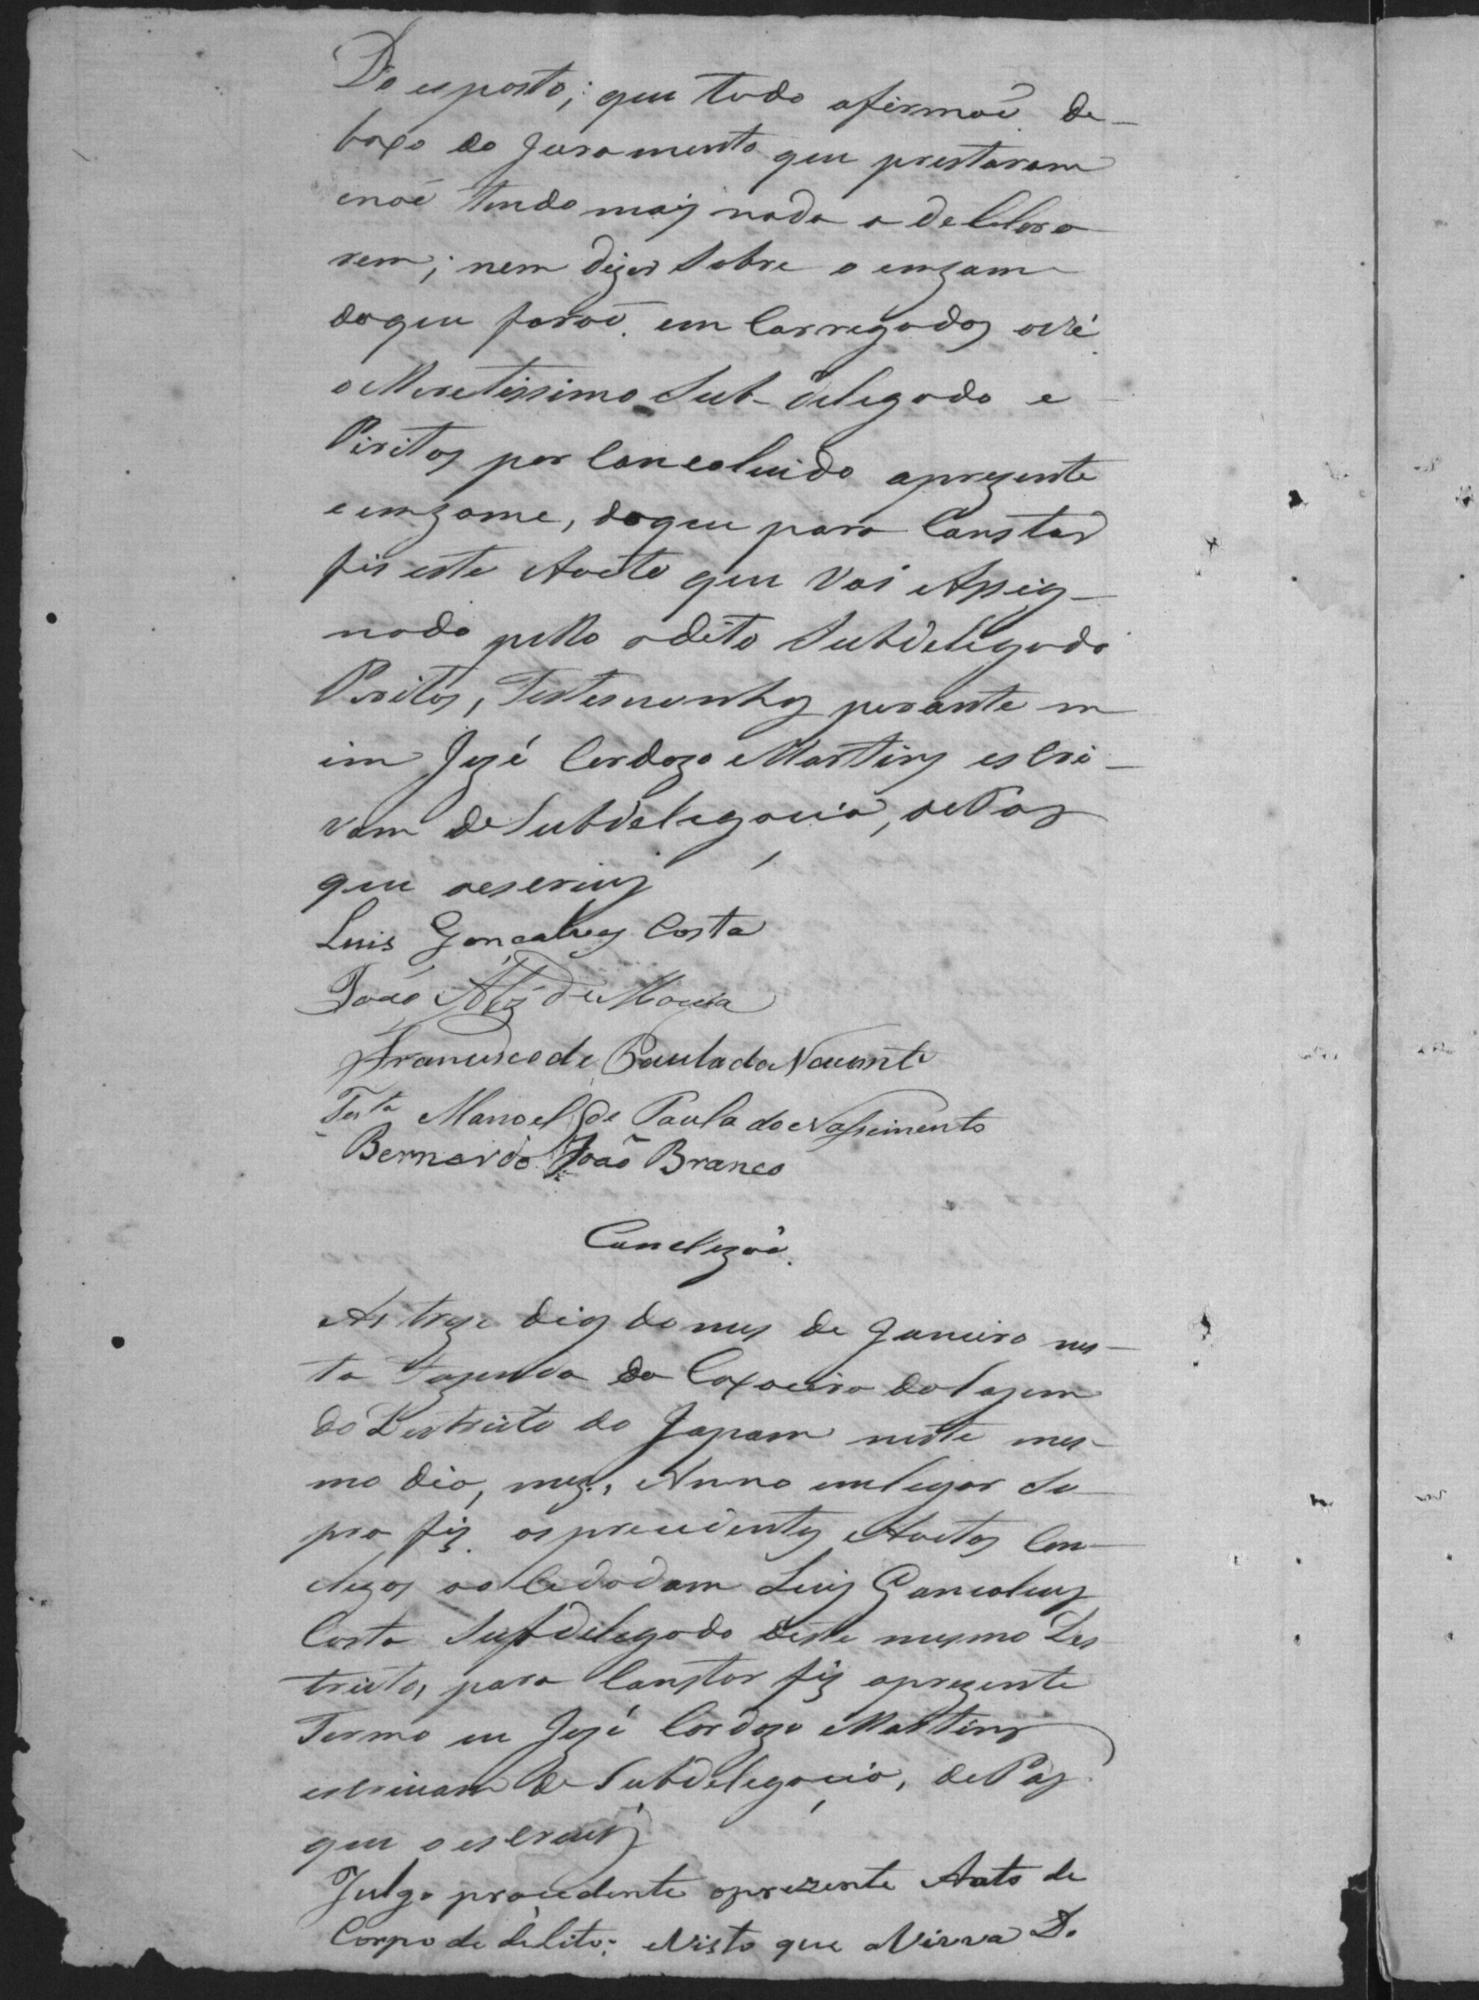 Do esposto; que tudo afirmaõ de-
baxo do Juramento que prestaram
enaõ tendo mais nada a decllara
rem; nem dizer sobre o emzam
doque foraõ emcarregados
o Meretissimo Sub-delegado e
Piritos por comcoluido aprezente
emzame, doque para Constar
fis este Aucto que vai Assig-
nado pello odito Subdelegado
Piritos, Testemunhas perante m
im Jozé Cardozo Martins escri-
vam de Subdelegacia, de Pas
que oescrivy
Luis Gonçalves Costa
João Alz de Moura
Francisco de Paula da
Testa Manoel de Paula do Nascimento
Bernardo João Branco
Conclezaõ.
As treze dias do mes de Janeiro nes-
ta Fazenda da Caxoeira da lagem
do Destricto do Japam neste mes-
mo dia, mez, Anno emlugar Su-
pra fis os precedentes Auctos Con-
clezos ao Cidodam Luis Goncalves
Costa Subdelegado deste mesmo Des
tricto, para Constar fis aprezente
Termo eu Jozé Cardozo Martins
escrivam de Subdelegacia, de Pas
que o escrevy
Julgo procedente aprezente Auto de
Corpo de delito; Visto que